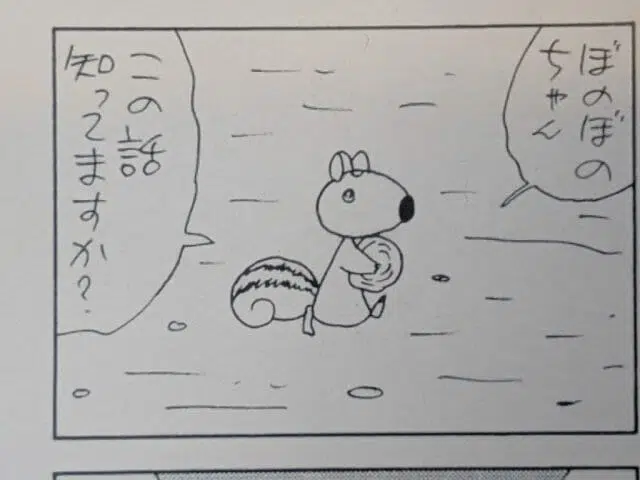 ぼのぼの
ちゃん
この話
知ってますか?